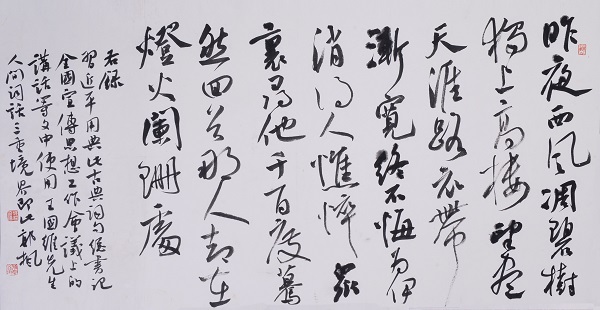 昨夜西风凋碧樹
獨上高樓望盡
天涯路衣帶
漸寬終不悔为伊
消得人憔悴眾
裏尋他千百度驀
然回首那人却在
燈火闌珊處
右錄
習近平用典此古典詞句總書記
全國宣傳思想工作會議上的
講話等文中使用了王國維先生
人间詞話三重境界即此